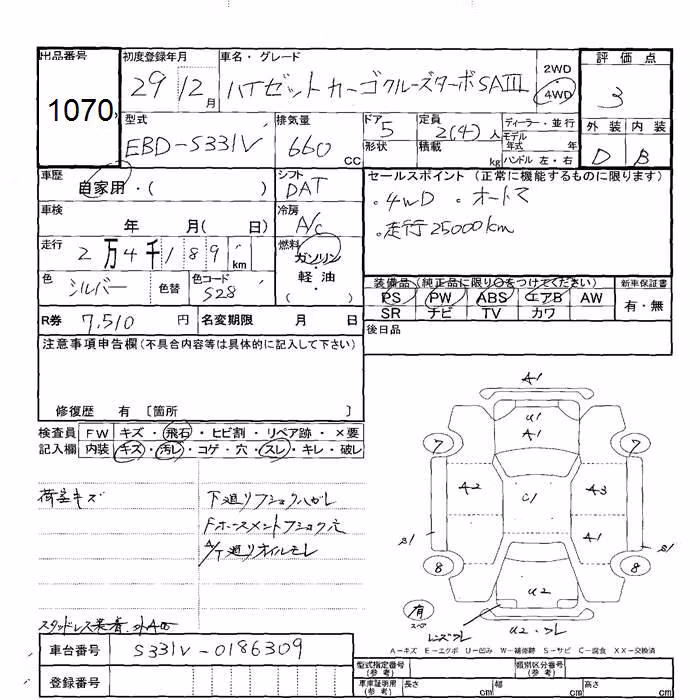 出品番号 初度登録年月 車名・グレード 2WD 評価点
1070 29 12月 ハイゼットカーゴクルーズターボSAIII 4WD 3
型式 排気量 ドア 定員 ディーラー・並行 外装 内装
EBD-S331V 660 CC 5 2(4)人 モデル年式 年
形状 積載 kg ハンドル 左・右 D B
車歴 シフト セールスポイント(正常に機能するものに限ります)
自家用・( ) DAT ・4WD ・オートマ
車検 冷房
年 月( 日) A/C ・走行25000km
走行 燃料
2万4千189km ガソリン
軽・油
色 色替 色コード ( )
シルバー S28
装備品(純正品に限り○をつけてください) 新車保証書
PS PW ABS エアB AW 有・無
SR ナビ TV カワ
R券 7,510円 名変期限 月 日 後日品
注意事項申告欄(不具合内容等は具体的に記入して下さい)
修復歴 有 〔箇所 〕
検査員 FW キズ・飛石・ヒビ割・リペア跡・×要
記入欄 内装 キズ・汚レ・コゲ・穴・スレ・キレ・破レ
荷室キズ 下廻りフショクハガレ
Fホースメントフショク穴
A/T廻りオイルモレ
スタッドレス装着
A1
U1
A1
7 7
A2 C1 A3
S1 A1 S1
8 8
U2
有 スペア
U2・ワレ
A-キズ E-エクボ U-凹み W-補修跡 S-サビ C-腐食 XX-交換済
車台番号 S331V-0186309
登録番号
型式指定番号(参考) 類別区分番号(参考)
車庫証明用(参考) 長さ cm 幅 cm 高さ cm